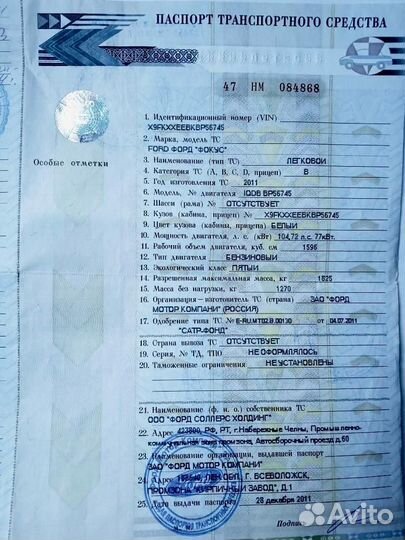 ПАСПОРТ ТРАНСПОРТНОГО СРЕДСТВА
47 НМ 084868
Особые отметки
1. Идентификационный номер (VIN)
X9FKXXEEBKBP56745
2. Марка, модель ТС
FORD ФОРД "ФОКУС"
3. Наименование (тип ТС) ЛЕГКОВОЙ
4. Категория ТС (А, В, С, D, прицеп) В
5. Год изготовления ТС 2011
6. Модель, № двигателя IQDB BP56745
7. Шасси (рама) № ОТСУТСТВУЕТ
8. Кузов (кабина, прицеп) № X9FKXXEEBKBP56745
9. Цвет кузова (кабины, прицепа) БЕЛЫЙ
10. Мощность двигателя, л. с. (кВт) 104,72 л.с. 77кВт.
11. Рабочий объем двигателя, куб. см 1596
12. Тип двигателя БЕНЗИНОВЫЙ
13. Экологический класс ПЯТЫЙ
14. Разрешенная максимальная масса, кг 1825
15. Масса без нагрузки, кг 1270
16. Организация–изготовитель ТС (страна) ЗАО "ФОРД
МОТОР КОМПАНИ" (РОССИЯ)
17. Одобрение типа ТС № E-RU.MT02.B.00130 от 04.07.2011
"САТР-ФОНД"
18. Страна вывоза ТС ОТСУТСТВУЕТ
19. Серия, № ТД, ТПО НЕ ОФОРМЛЯЛОСЬ
20. Таможенные ограничения НЕ УСТАНОВЛЕНЫ
21. Наименование (ф. и. о.) собственника ТС
ООО "ФОРД СОЛЛЕРС ХОЛДИНГ"
22. Адрес 423800, РФ, РТ, г.Набережные Челны, Промышленно-
коммунальная зона промзона, Автосборочный проезд д.60
23. Наименование организации, выдавшей паспорт
ЗАО "ФОРД МОТОР КОМПАНИ"
24. ЛЕН.ОБЛ., Г. ВСЕВОЛОЖСК,
ПРОМЗОНА "КИРПИЧНЫЙ ЗАВОД", Д.1
25. Дата выдачи паспорта 28 декабря 2011
Подпись
Avito